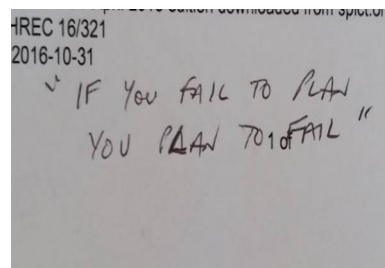 2016 edition downloaded from spict.or
HREC 16/321
2016-10-31
"IF YOU FAIL TO PLAN
YOU PLAN TO FAIL"
1 of